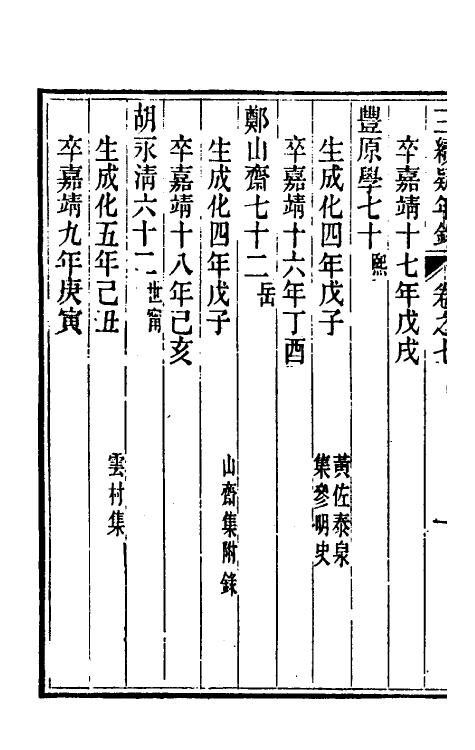 三續疑年錄 卷之七 一
卒嘉靖十七年戊戌
豐原學七十 熙
生成化四年戊子 黃佐泰泉
集參明史
卒嘉靖十六年丁酉
鄭山齋七十二 岳
生成化四年戊子 山齋集附錄
卒嘉靖十八年己亥
胡永清六十二 世甯
生成化五年己丑 雲村集
卒嘉靖九年庚寅